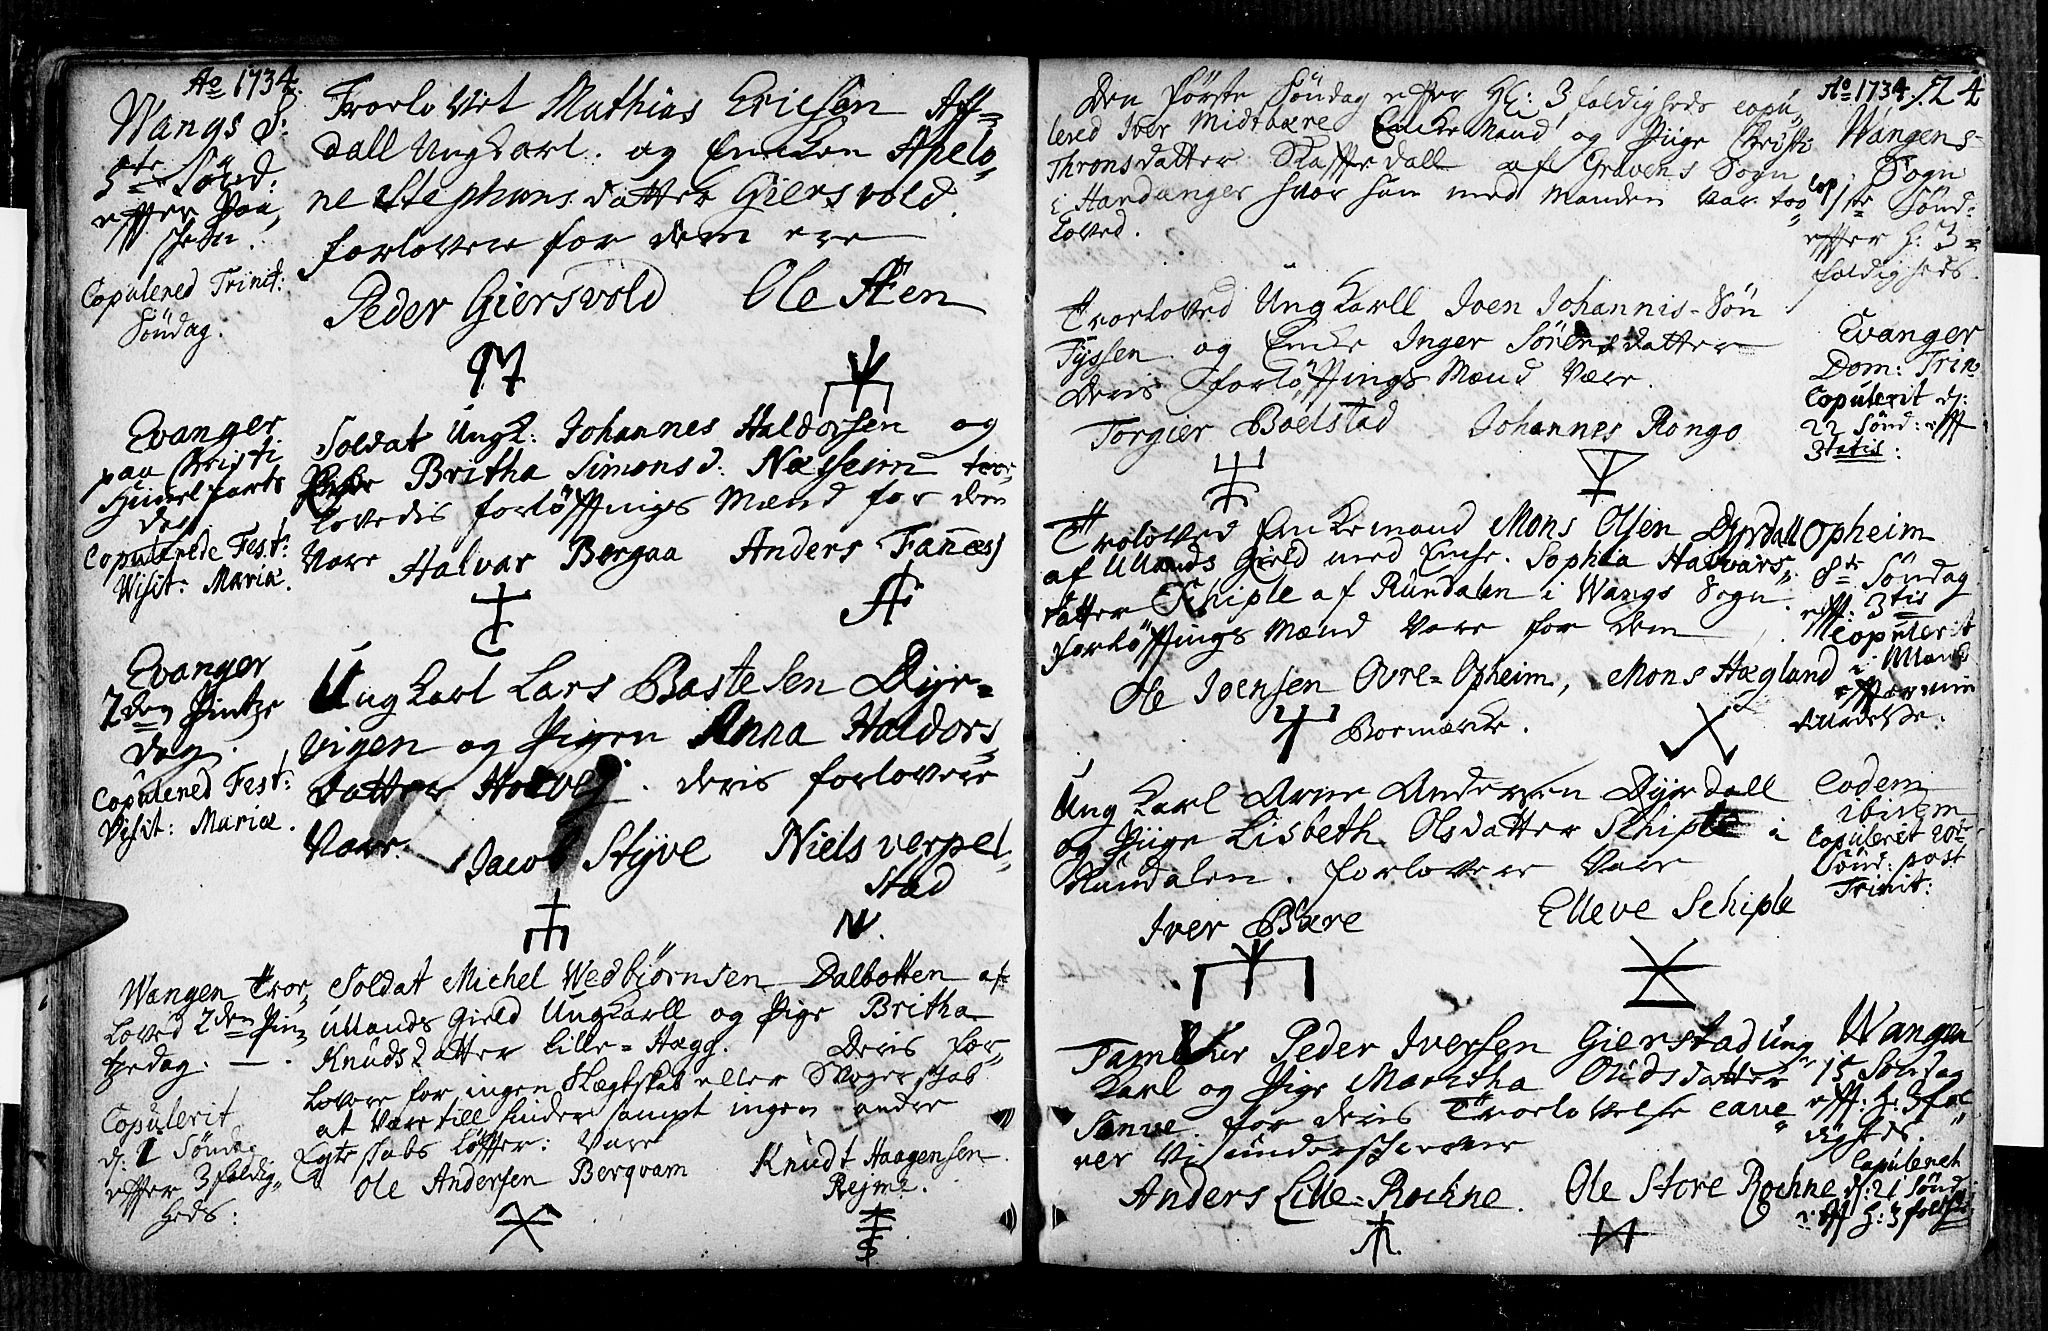 Ao 1734.
Wangs S:
5te Sönd:
effter Paa,,
schen.
Copulered Trinit:
Söndag.
Troelovet Mathias Ericsøn Aff=
dall Ungkarl. og Encken Apelo,,
ne Stephans datter Giersvold.
forlovere for dem ere
Peder Giersvold Ole Æen
Evanger
paa Christi
Himmelfarts
dag
Copulerede Fest:
Visit: Mariæ.
Soldat Ungk: Johannes Haldorsen og
Pige Britha Simonsd: Næsheim troe,,
lovedis forløfftings Mænd for dem
Vare Halvar Bergaa Anders Fanæss
Evanger
2den Pintze
dag.
Copulered Fest:
Visit: Mariæ.
Ungkarl Lars Bastesen Dyr=
vigen og Pigen Anna Haldors,,
datter Horvej. deris forlovere
Vare. Jacob Styve Niels verpel,,
stad
Wangen Troe,,
loved 2den Pin,,
tzedag. —.
Copulerit
d: 1 Söndag
effter 3foldig,,
heds:
Soldat Michel Wedbiørnsen Dalbotten af
Ullands Gield Ungkarll og Pige Britha
Knudsdatter Lille=Hægg. Deris for,,
lovere for ingen Slægtskab eller Svogerskab
at være till hinder sampt ingen andre
Egteskabs Løffter: Vare
Ole Andersen Bergvam Knudt Haagensen
Rejme.
Ao 1734. 124
Den Förste Söndag effter HL: 3foldigheds copu,,
lered Iver Midtbære Enckemand og Pige Christi
Thronsdatter Skaffledall af Gravens Sogn
i Hardanger hvor hun med Manden var troe,,
loved.
Wangens
Sogn
Cop: 1te Sönd:
effter h: 3=
foldigheds.
Troeloved Ungkarll Joen Johannis-Søn
Tyssen og Encke Inger Sörensdatter
deris forløfftings Mænd Være.
Torgier Boelstad Johannes Rongo
Evanger
Dom: Trin.
Copulerit d:
22 Sönd: eff
3tatis:
Troloved Enckemand Mons Olsen Dyrdall
af Ullands Gield med Encke. Sophia Halvars,,
datter Schiple af Rundalen i Wangs Sogn.
forløfftings Mænd Vare for dem
Ole Joensen Øvre=Opheim, Mons Hægland
Boemærcke.
Opheim
8de Söndag
eff: 3tis
Copulerit
i Ulland
effter min
tilladelse.
Ungkarl Arne Andersen Dyrdall
og Pige Lisbeth Olsdatter Schiple i
Rundalen. forlovere Vare
Iver Bære Elleve Schiple
Eodem
ibidem
Copulerit 20de
Sönd: post
Trinit:
Tambur Peder Iversen Gierstad Ung,,
karl og Pige Maritha Oddsdatter
Sanve. for deris Troelovelse cave,,
rer Vi underschrevne
Anders Lille-Rochne. Ole Store Rochne
Wangen
15 Söndag
eff: H: 3fol,,
digheds.
Copuleret
d: 21 Sönd:
eff h: 3foldh: